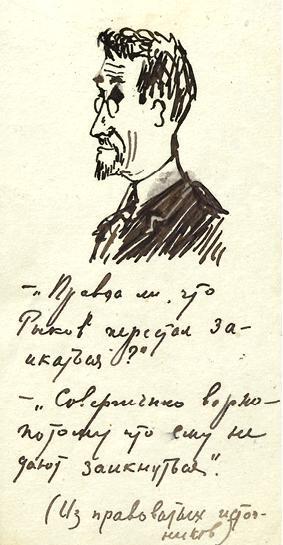 — „Правда ли, что
Рыков перестал за-
икаться?"
— „Совершенно верно —
потому что ему не
дают заикнуться".
(Из правоватых источ-
ников)